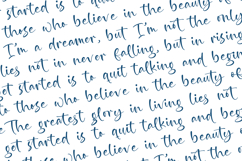 get started is to quit
those who believe in the beauty
I'm a dreamer, but I'm not the only
lies not in never falling, but in rising
get started is to quit talking and begin
to those who believe in the beauty of
The greatest glory in living lies not
get started is to quit talking and begin
those who believe in the beauty
but I'm not the